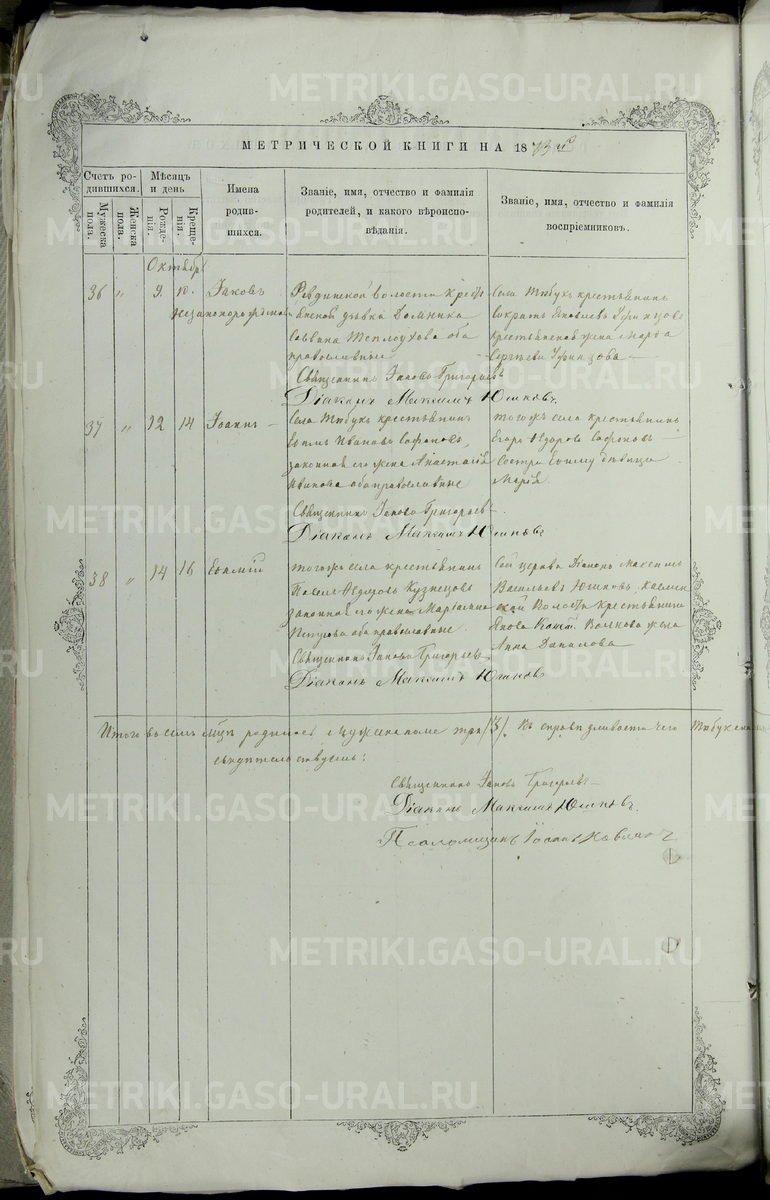 МЕТРИЧЕСКОЙ КНИГИ НА 1873 й
Счетъ ро-
дившихся.
Мужеска
полa.
Женска
пола.
Мѣсяцъ
и день
Рожде-
нія.
Креще-
нія.
Имена
родив-
шихся.
Званіе, имя, отчество и фамилія
родителей, и какого вѣроиспо-
вѣданія.
Званіе, имя, отчество и фамилія
воспріемниковъ.
Октябрь
36 " 9. 10. Іаковъ
незаконорожденный
Ревдинской волости кресть
янская дѣвка Домника
Саввина Теплоухова оба
православные
Священникъ Іаковъ Григорьевъ
Діаконъ Максимъ Юшковъ
Села Тюбукъ крестьянинъ
крестьянская жена Марѳа
Сергѣева
37 " 12 14 Іоаннъ
Села Тюбукъ крестьянинъ
Ефимъ Ивановъ Сафоновъ,
законная его жена Анастасія
Иванова оба православные
Священникъ Іаковъ Григорьевъ
Діаконъ Максимъ Юшковъ
тогожъ села крестьянинъ
Егоръ Ѳедоровъ Сафоновъ
Сестра Ефиму дѣвица
Марія.
38 " 14 16 Евѳимій
тогожъ села крестьянинъ
Павелъ Ѳедоровъ Кузнецовъ
законная его жена Марѳа
оба православные.
Священникъ Іаковъ Григорьевъ
Діаконъ Максимъ Юшковъ
Сей церкви Діаконъ Максимъ
Васильевъ Юшковъ, Каслин
ской Волости Крестьянина
Якова Волкова жена
Анна Данилова
Итого въ семъ мцѣ родилось мужеска пола три /3/. Въ справедливости чего
свидѣтельствуемъ:
Священникъ Іаковъ Григорьевъ
Діаконъ Максимъ Юшковъ.
Псаломщикъ Іоаннъ
METRIKI.GASO-URAL.RU